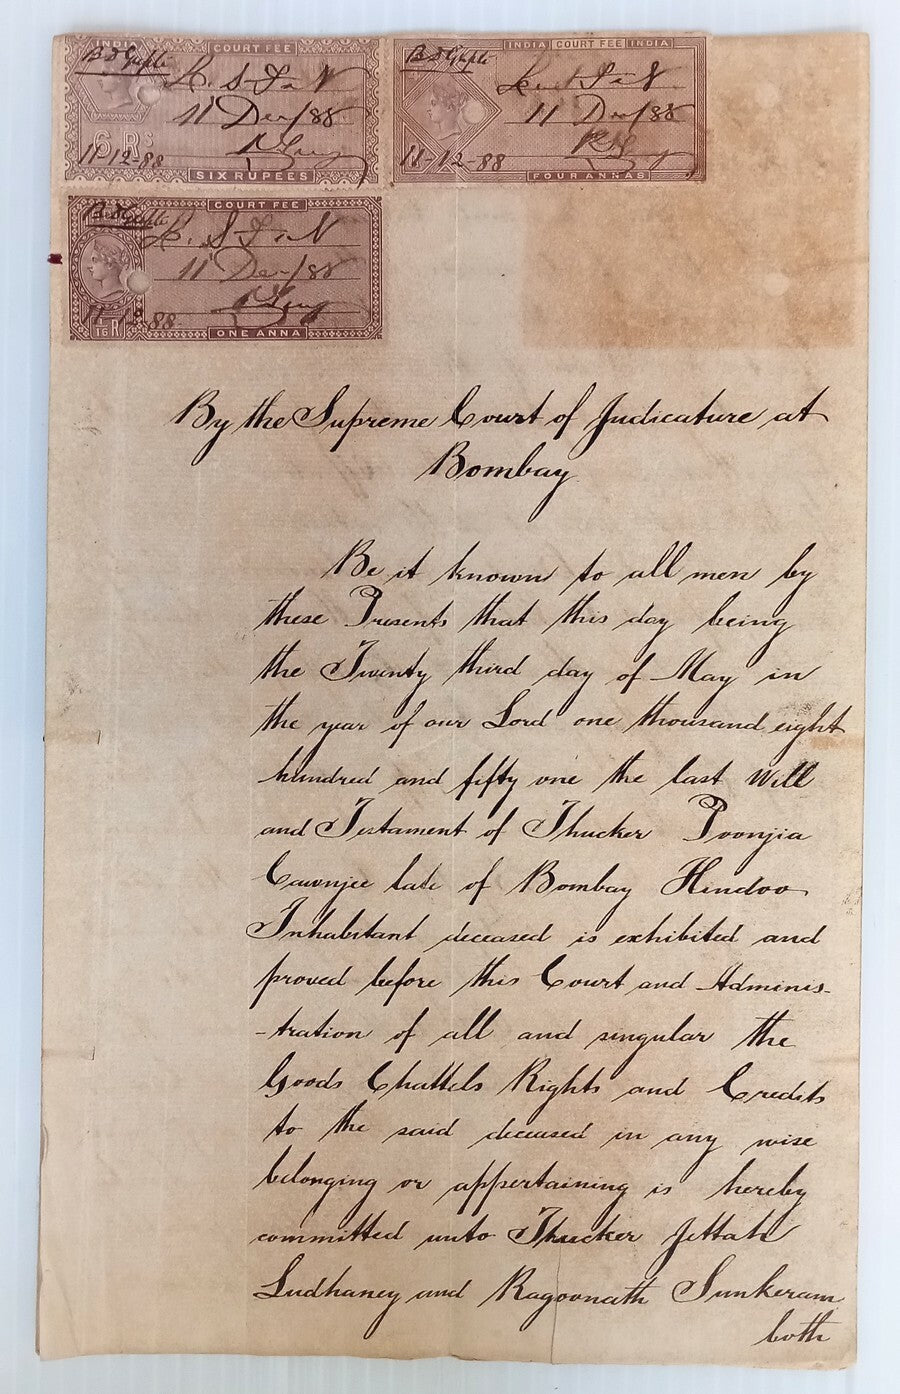 INDIA COURT FEE
B D Gupte
L. S. I. N
11 Decr/88
6 Rs
11-12-88
SIX RUPEES
INDIA COURT FEE INDIA
B D Gupte
11 Decr/88
11-12-88
FOUR ANNAS
COURT FEE
B D Gupte
11 Decr/88
11-12-88
1/16 R
ONE ANNA
By the Supreme Court of Judicature at
Bombay
Be it known to all men by
these Presents that this day being
the Twenty third day of May in
the year of our Lord one thousand eight
hundred and fifty one the last Will
and Testament of Thucker Poonjia
Cawnjee late of Bombay Hindoo
Inhabitant deceased is exhibited and
proved before this Court and Adminis-
-tration of all and singular the
Goods Chattels Rights and Credits
to the said deceased in any wise
belonging or appertaining is hereby
committed unto Thucker Jettah
Ludhaney and Ragoonath Sunkeram
both